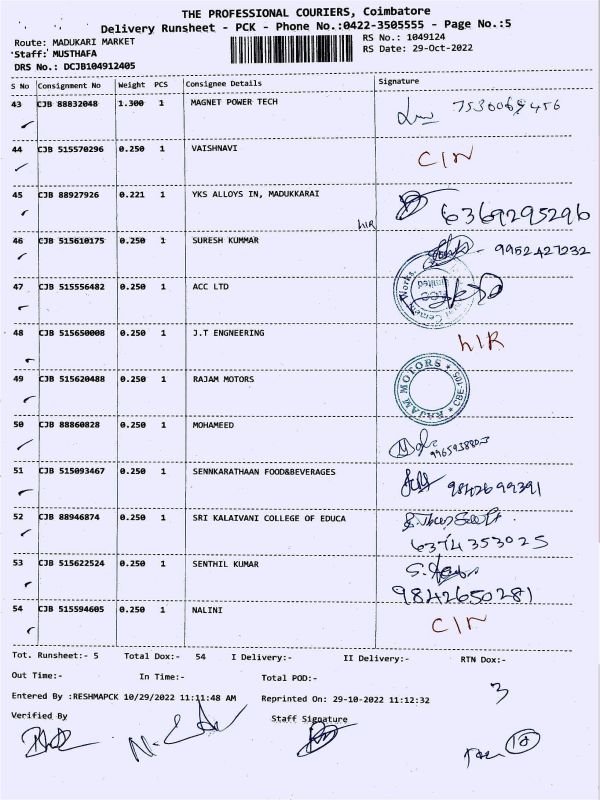 THE PROFESSIONAL COURIERS, Coimbatore
Delivery Runsheet - PCK - Phone No.:0422-3505555 - Page No.:5
Route: MADUKARI MARKET
RS No.: 1049124
Staff: MUSTHAFA
RS Date: 29-Oct-2022
DRS No.: DCJB104912405
S No Consignment No Weight PCS Consignee Details Signature
43 CJB 88832048 1.300 1 MAGNET POWER TECH
44 CJB 515570296 0.250 1 VAISHNAVI C/N
45 CJB 88927926 0.221 1 YKS ALLOYS IN, MADUKKARAI 6369295296
h/R
46 CJB 515610175 0.250 1 SURESH KUMMAR - 9952427232
47 CJB 515556482 0.250 1 ACC LTD
48 CJB 515650008 0.250 1 J.T ENGNEERING h/R
49 CJB 515620488 0.250 1 RAJAM MOTORS RAJAM MOTORS CBE-105
50 CJB 88860828 0.250 1 MOHAMEED
51 CJB 515093467 0.250 1 SENNKARATHAAN FOOD&BEVERAGES 9842699391
52 CJB 88946874 0.250 1 SRI KALAIVANI COLLEGE OF EDUCA
6374353025
53 CJB 515622524 0.250 1 SENTHIL KUMAR
9842650281
54 CJB 515594605 0.250 1 NALINI C/N
Tot. Runsheet:- 5 Total Dox:- 54 I Delivery:- II Delivery:- RTN Dox:-
Out Time:- In Time:- Total POD:-
3
Entered By :RESHMAPCK 10/29/2022 11:11:48 AM Reprinted On: 29-10-2022 11:12:32
Verified By Staff Signature
18